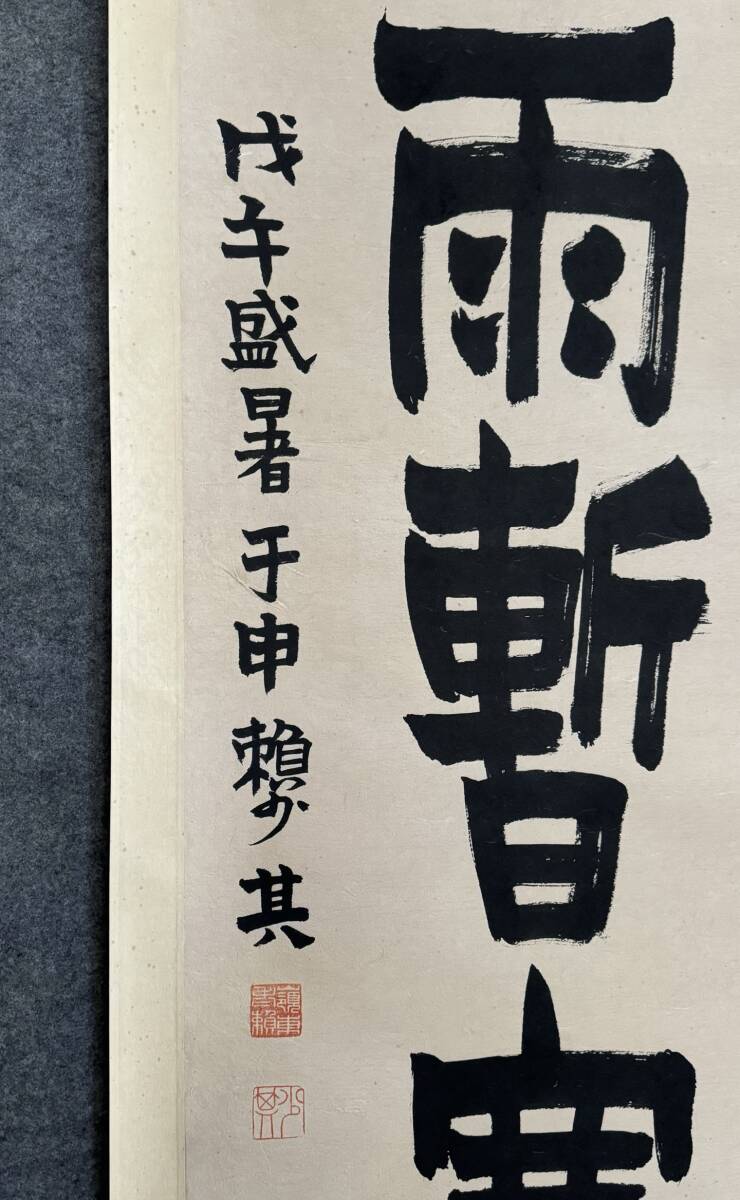 雨暫
戊午盛暑于申賴少其